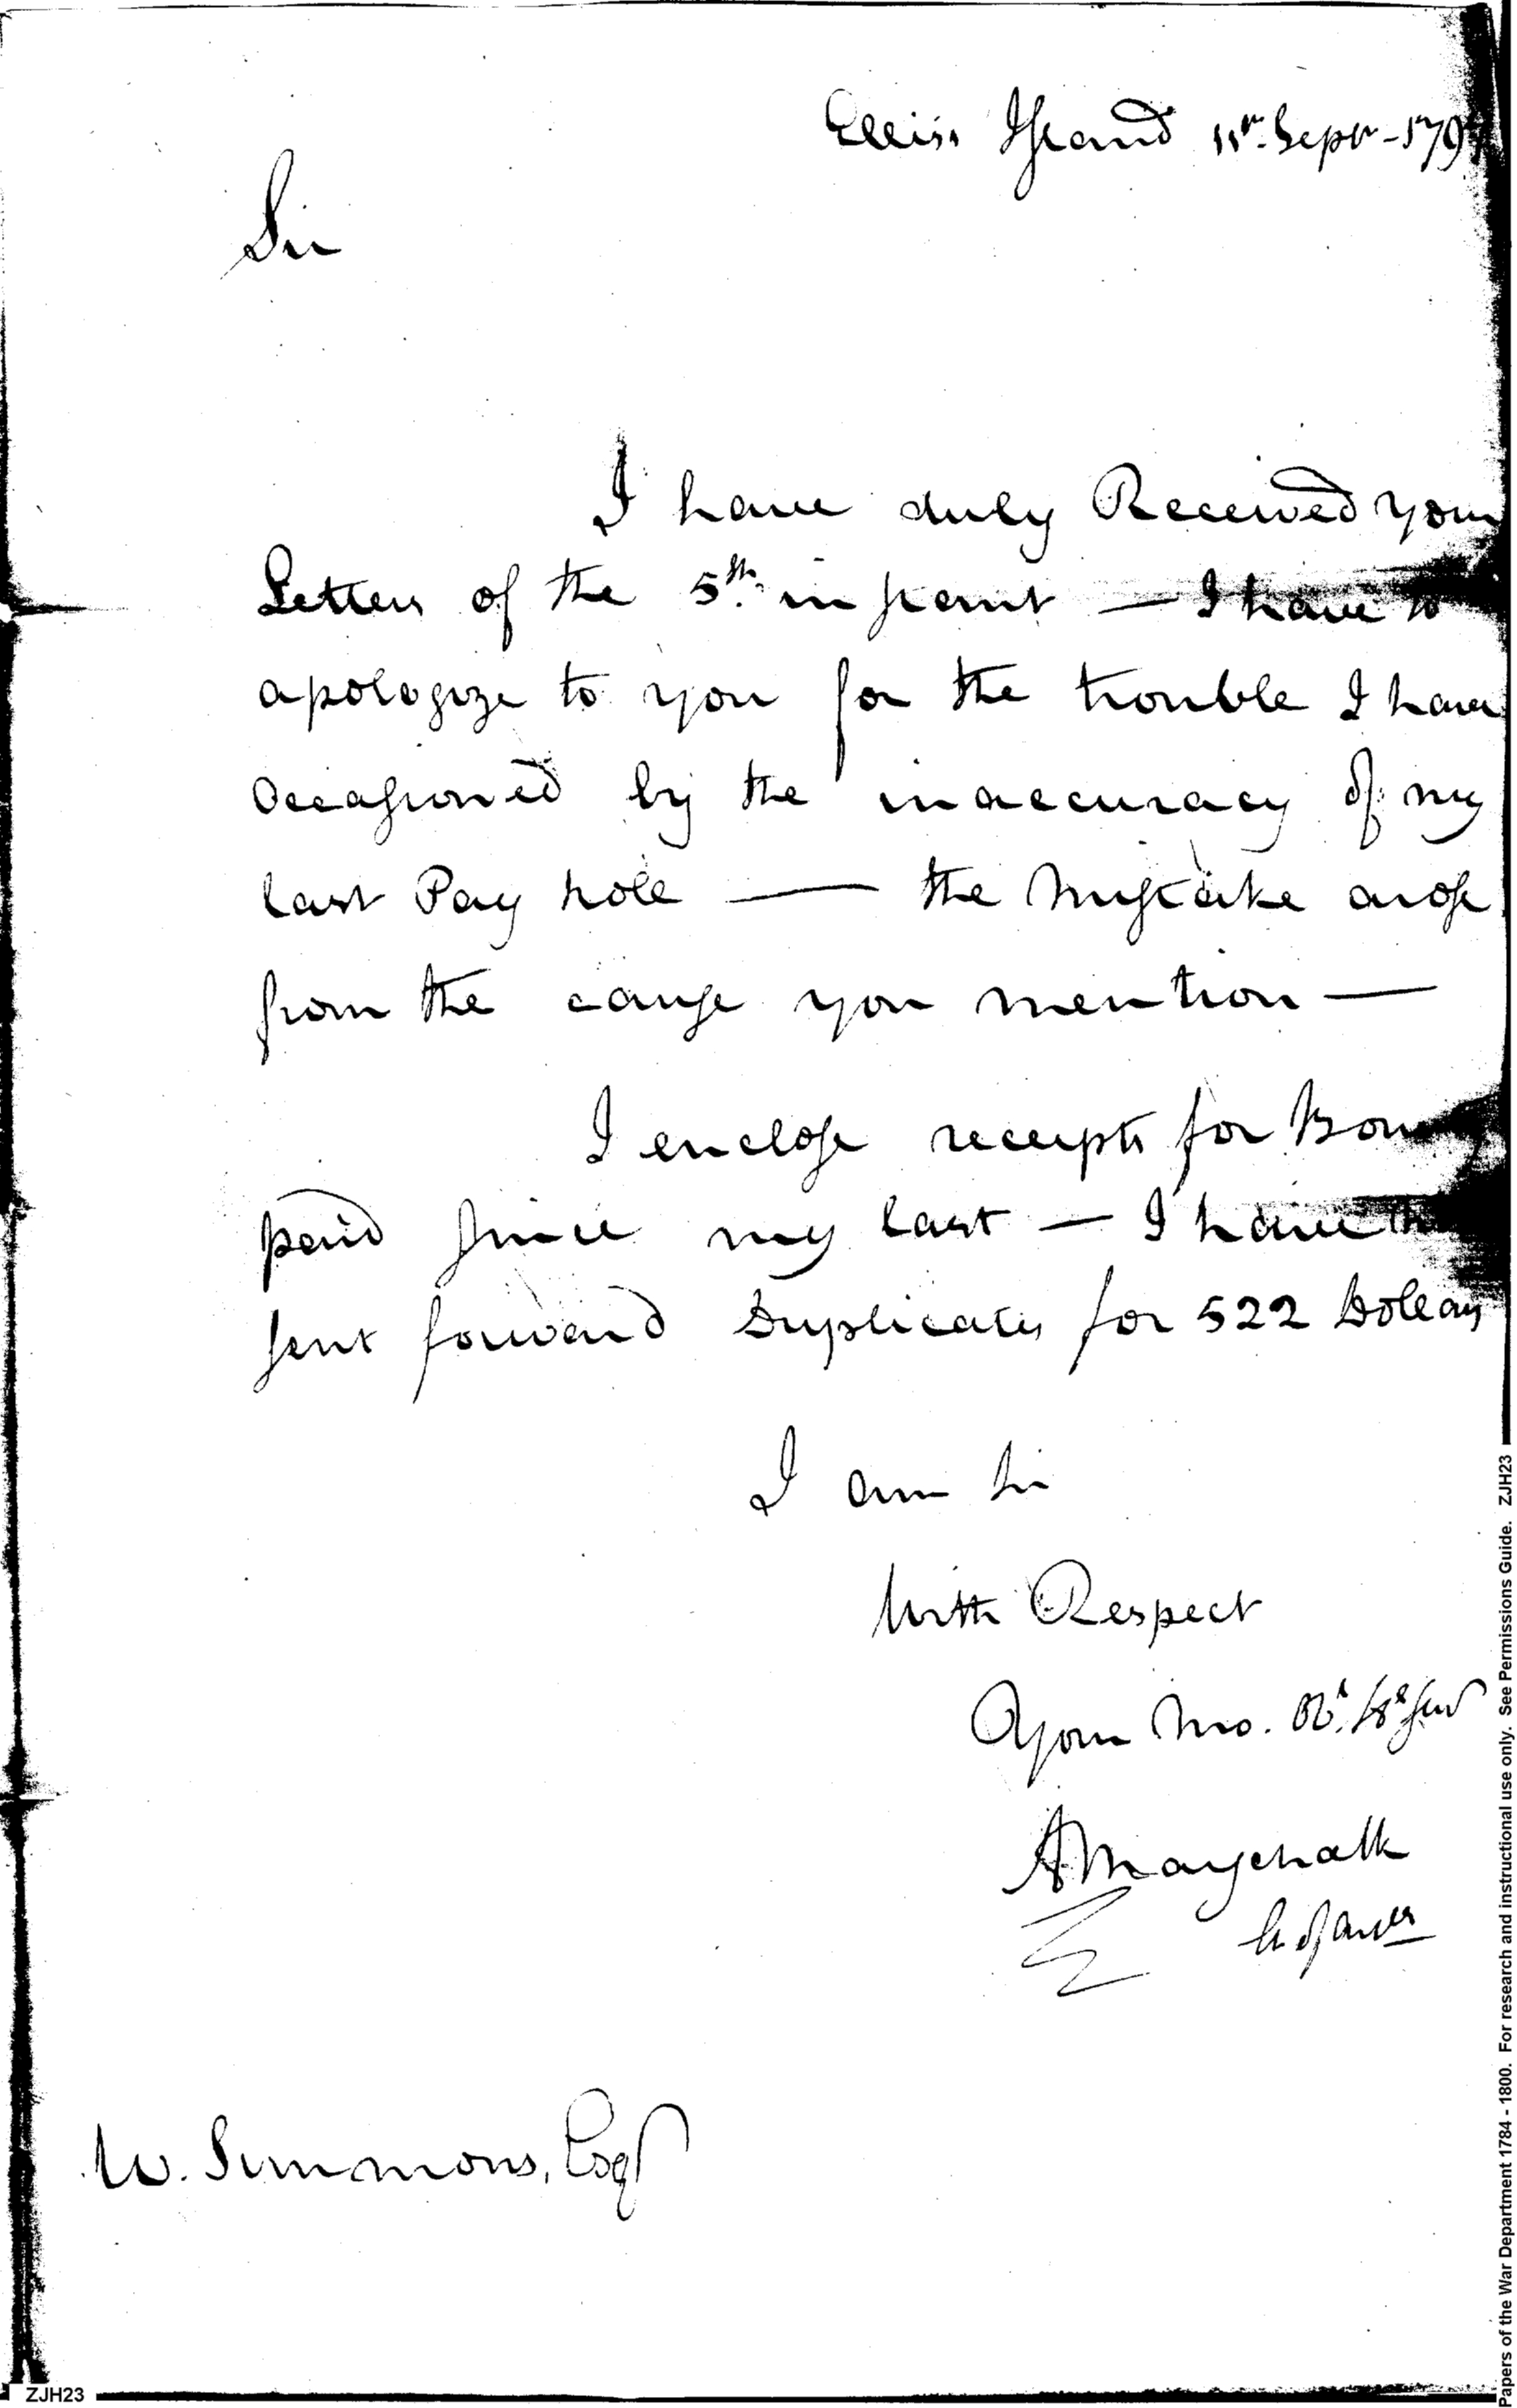 Ellis's Island 11th Septr - 179
Sir
I have duly Received your
Letters of the 5th instant — I have to
apologize to you for the trouble I have
Occasioned by the inaccuracy of my
last Pay Role — the Mistake arose
from the cause you mention —
I enclose receipts for
paid since my last — I have
sent forward Duplicates for 522 Dollars
I am Sir
With Respect
Your Mo. Ob. H. Serv
W. Simmons, Esqr
ZJH23
Papers of the War Department 1784 - 1800. For research and instructional use only. See Permissions Guide. ZJH23